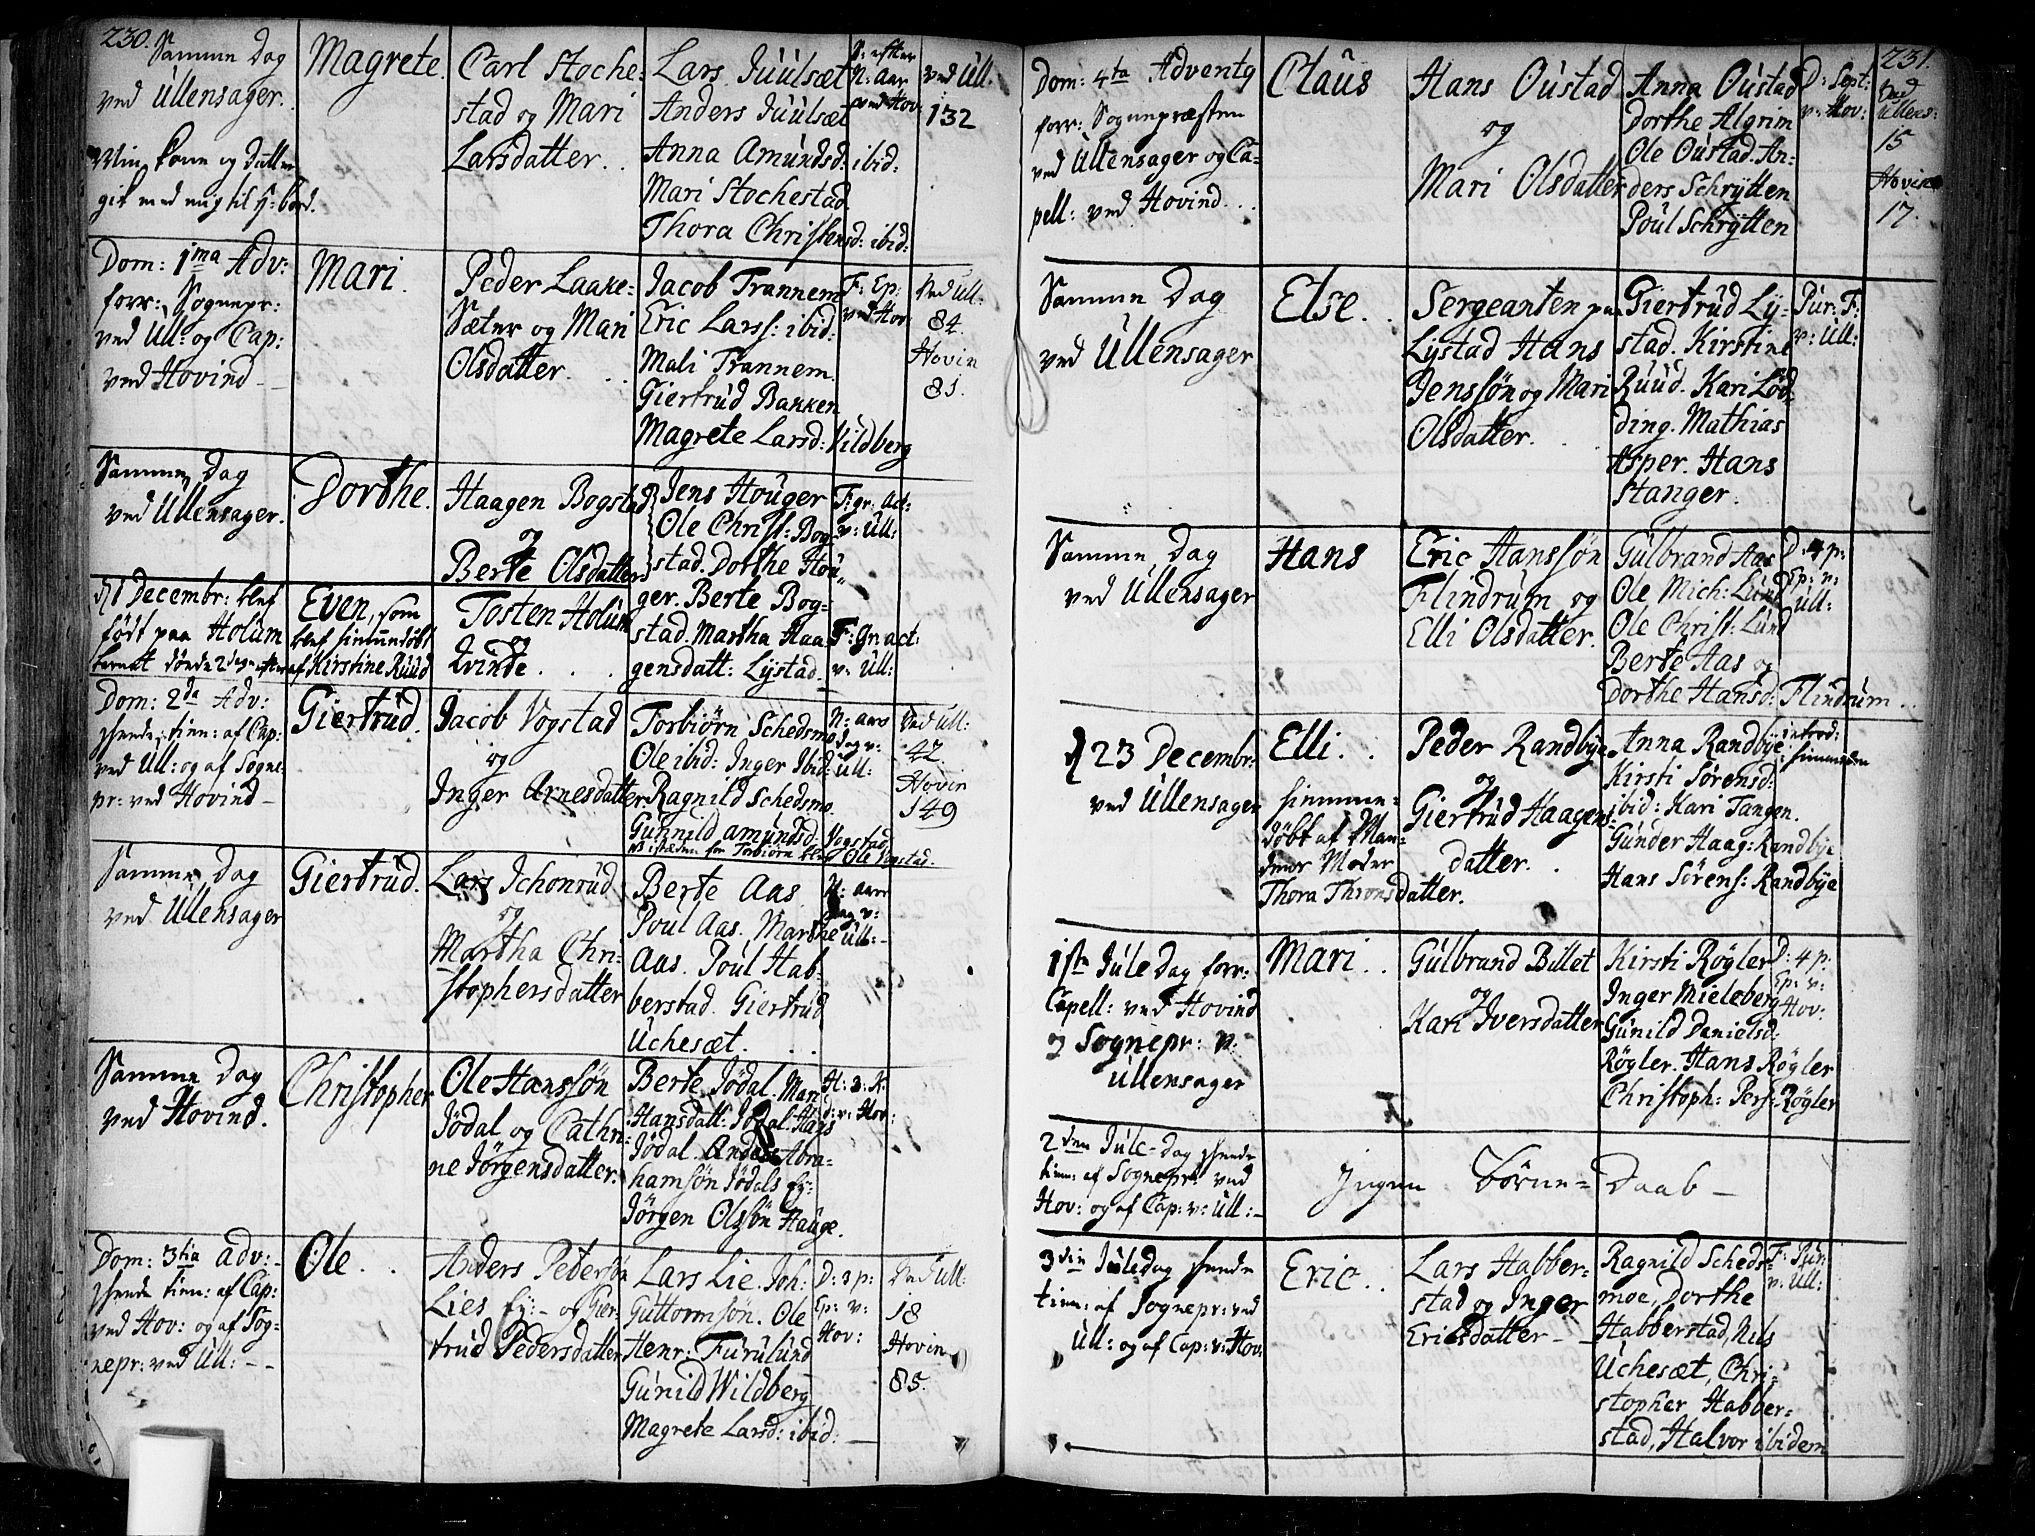 230.
Samme Dag
ved Ullensager.
Min kone og datter
gik med mig til H: bord.
Magrete.
Carl Stoche-
stad og Mari
Larsdatter.
Lars Juulsæt
Anders Juulsæt
Anna Amundsd: ibid:
Mari Stochestad
Thora Christensd: ibid:
S: efter
N: aar
ved Hov:
ved Ull:
132
Dom: 1ma Adv:
forr: Sognepr:
ved Ull: og Cap:
ved Hovind -
Mari.
Peder Laake-
Sæter og Mari
Olsdatter.
Jacob Trannem
Eric Larss: ibid:
Mali Trannem.
Giertrud Bakken
Magrete Larsd: Vildberg
F: Ep:
ved Hov
ved Ull:
84.
Hovin
81.
Samme Dag
ved Ullensager.
Dorthe.
Haagen Bogstad
og
Berte Olsdatter
Jens Houger
Ole Christ: Bog-
stad. Dorthe Hou-
ger. Berte Bog-
stad. Martha Haa-
gensdatt: Lystad.
F: gr: act:
v: Ull:
d 1 Decembr: blef
født paa Holum
barnet døde 2 dage
Even, som
blef hiemmedøbt
af Kirstine Ruud
Tosten Holum
og
Qvinde . . .
F: gr: act:
v: Ull:
Dom: 2da Adv:
 tien: af Cap:
ved Ull: og af Sogne-
pr: ved Hovind -
Giertrud.
Jacob Vogstad
og
Inger Arnesdatter
Torbiørn Schedsmo
Ole ibid: Inger Ibid:
Ragnild Schedsmo
Gunnild Amundsd: Vogstad
NB isteden for Torbiørn blev Ole Vogstad.
N: aars
dag v:
Ull:
ved Ull:
42.
Hovin
149
Samme Dag
ved Ullensager
Giertrud.
Lars Schonrud
og
Martha Chri-
stophersdatter
Berte Aas
Poul Aas. Marthe
Aas. Poul Hab-
berstad. Giertrud
Uchesæt. . .
N: aars
dag v:
Ull: -
Samme Dag
ved Hovind.
Christopher
Ole Hanssøn
Jødal og Cathri-
ne Jørgensdatter.
Berte Jødal. Mari
Hansdatt: Jødal. Hans
Jødal. Anders Abra-
hamsøn Jødals Ey:
Jørgen Olssøn Hauge.
H: 3: K:
d: v: Hov:
Dom: 3tia Adv: -
 tien: af Cap:
ved Hov: og af Sog-
nepr: ved Ull: - -
Ole . .
Anders Pedersøn
Lies Ey: - og Gier-
trud Pedersdatter
Lars Lie. Joh:
Guttormsøn. Ole
Henr: Furulund
Gunild Wildberg
Magrete Larsd: ibid: -
D: 3 p:
Ep: v:
Hov:
ved Ull:
18
Hovin
85.
231.
Dom: 4ta Advent
forr: Sognepræsten
ved Ullensager og Ca-
pell: ved Hovind . . .
Claus
Hans Oustad
og
Mari Olsdatter
Anna Oustad
Dorthe Algrim
Ole Oustad. An-
ders Schrytten
Poul Schrytten
D: Sept:
v: Hov:
ved
Ullens:
15
Hovin
17.
Samme Dag
ved Ullensager
Else. .
Sergeanten paa
Lystad Hans
Jenssøn og Mari
Olsdatter.
Giertrud Ly-
stad. Kirstine
Ruud. Kari Lød-
ding. Mathias
Asper. Hans
Stanger.
Pur: F:
v: Ull:
Samme Dag
ved Ullensager
Hans
Eric Hanssøn
Flindrum og
Elli Olsdatter.
Gulbrand Aas
Ole Mich: Lund
Ole Christ: Lund
Berte Aas og
Dorthe Hansd: Flindrum. .
D: 4 p:
Ep: v:
Ull:
d 23 Decembr:
ved Ullensager
Elli . .
hiemme-
døbt af Man-
dens Moder
Thora Thronsdatter.
Peder Randbye
og
Giertrud Haagens-
datter. .
Anna Randbye
Kirsti Sørensd:
ibid: Kari Tangen.
Gunder Haag: Randbye
Hans Sørens: Randbye
introd:
hiemme
1ste Jule Dag forr:
Capell: ved Hovind
og Sognepr: v:
Ullensager
Mari . .
Gulbrand Billet
og
Kari Iversdatter
Kirsti Røgler
Inger Mieleberg
Gunild Danielsd:
Røgler. Hans Røgler
Christoph: Pers: Røgler
D: 4 p:
Ep: v:
Hov:
2den Jule-Dag
tien: af Sognepr: ved
Hov: og af Cap: v: Ull: -
Ingen Børne-Daab -
3die Juledag
tien: af Sognepr: ved
Ull: og af Cap: v: Hov:
Eric . .
Lars Habber-
stad og Inger
Ericsdatter -
Ragnild Scheds-
moe, Dorthe
Habberstad, Nils
Uchesæt, Chri-
stopher Habber-
stad, Halvor ibidem
F: Pur:
v: Ull: